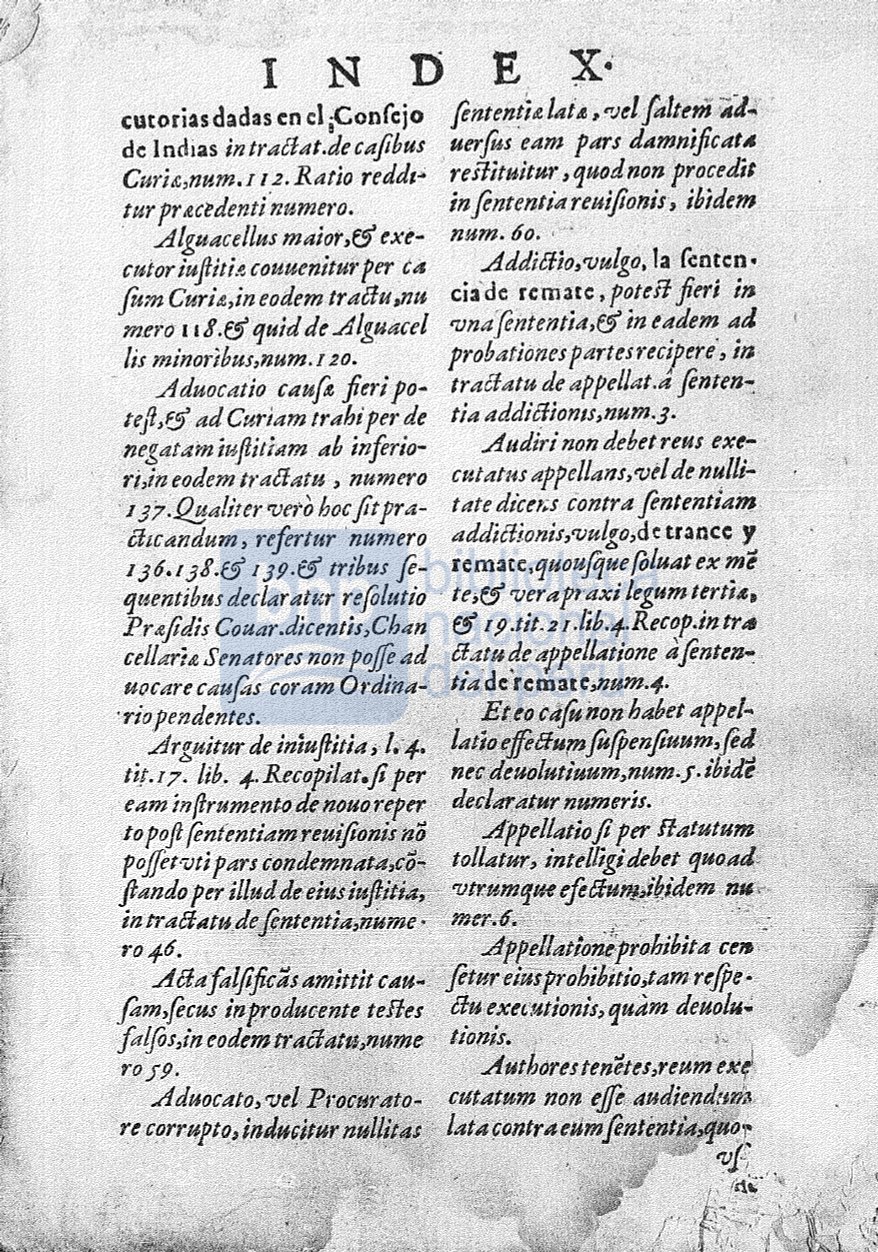 INDEX.
cutorias dadas en el Consejo
de Indias in tractat. de casibus
Curiæ, num. 112. Ratio reddi-
tur præcedenti numero.
Alguacellus maior, & exe-
cutor iustitiæ couuenitur per ca
sum Curiæ, in eodem tractu, nu
mero 118. & quid de Alguacel
lis minoribus, num. 120.
Aduocatio causæ fieri po-
test, & ad Curiam trahi per de
negatam iustitiam ab inferio-
ri, in eodem tractatu, numero
137. Qualiter verò hoc sit pra-
cticandum, refertur numero
136. 138. & 139. & tribus se-
quentibus declaratur resolutio
Præsidis Couar. dicentis, Chan
cellariæ Senatores non posse ad
uocare causas coram Ordina-
rio pendentes.
Arguitur de iniustitia, l. 4.
tit. 17. lib. 4. Recopilat. si per
eam instrumento de nouo reper
to post sententiam reuisionis nõ
posset vti pars condemnata, cõ-
stando per illud de eius iustitia,
in tractatu de sententia, nume-
ro 46.
Acta falsificãs amittit cau-
sam, secus in producente testes
falsos, in eodem tractatu, nume
ro 59.
Aduocato, vel Procurato-
re corrupto, inducitur nullitas
sententiæ latæ, vel saltem ad-
uersus eam pars damnificata
restituitur, quod non procedit
in sententia reuisionis, ibidem
num. 60.
Addictio, vulgo, la senten-
cia de remate, potest fieri in
vna sententia, & in eadem ad
probationes partes recipere, in
tractatu de appellat. à senten-
tia addictionis, num. 3.
Audiri non debet reus exe-
cutatus appellans, vel de nulli-
tate dicens contra sententiam
addictionis, vulgo, de trance y
remate, quousque soluat ex mẽ
te, & vera praxi legum tertiæ,
& 19. tit. 21. lib. 4. Recop. in tra
ctatu de appellatione à senten-
tia de remate, num. 4.
Et eo casu non habet appel-
latio effectum suspensiuum, sed
nec deuolutiuum, num. 5. ibidẽ
declaratur numeris.
Appellatio si per statutum
tollatur, intelligi debet quoad
vtrumque efectum, ibidem nu
mer. 6.
Appellatione prohibita cen
setur eius prohibitio, tam respe-
ctu executionis, quàm deuolu-
tionis.
Authores tenẽtes, reum exe
cutatum non esse audiendum
lata contra eum sententia, quo-
vs
biblioteca
nacional
del perú
bnp